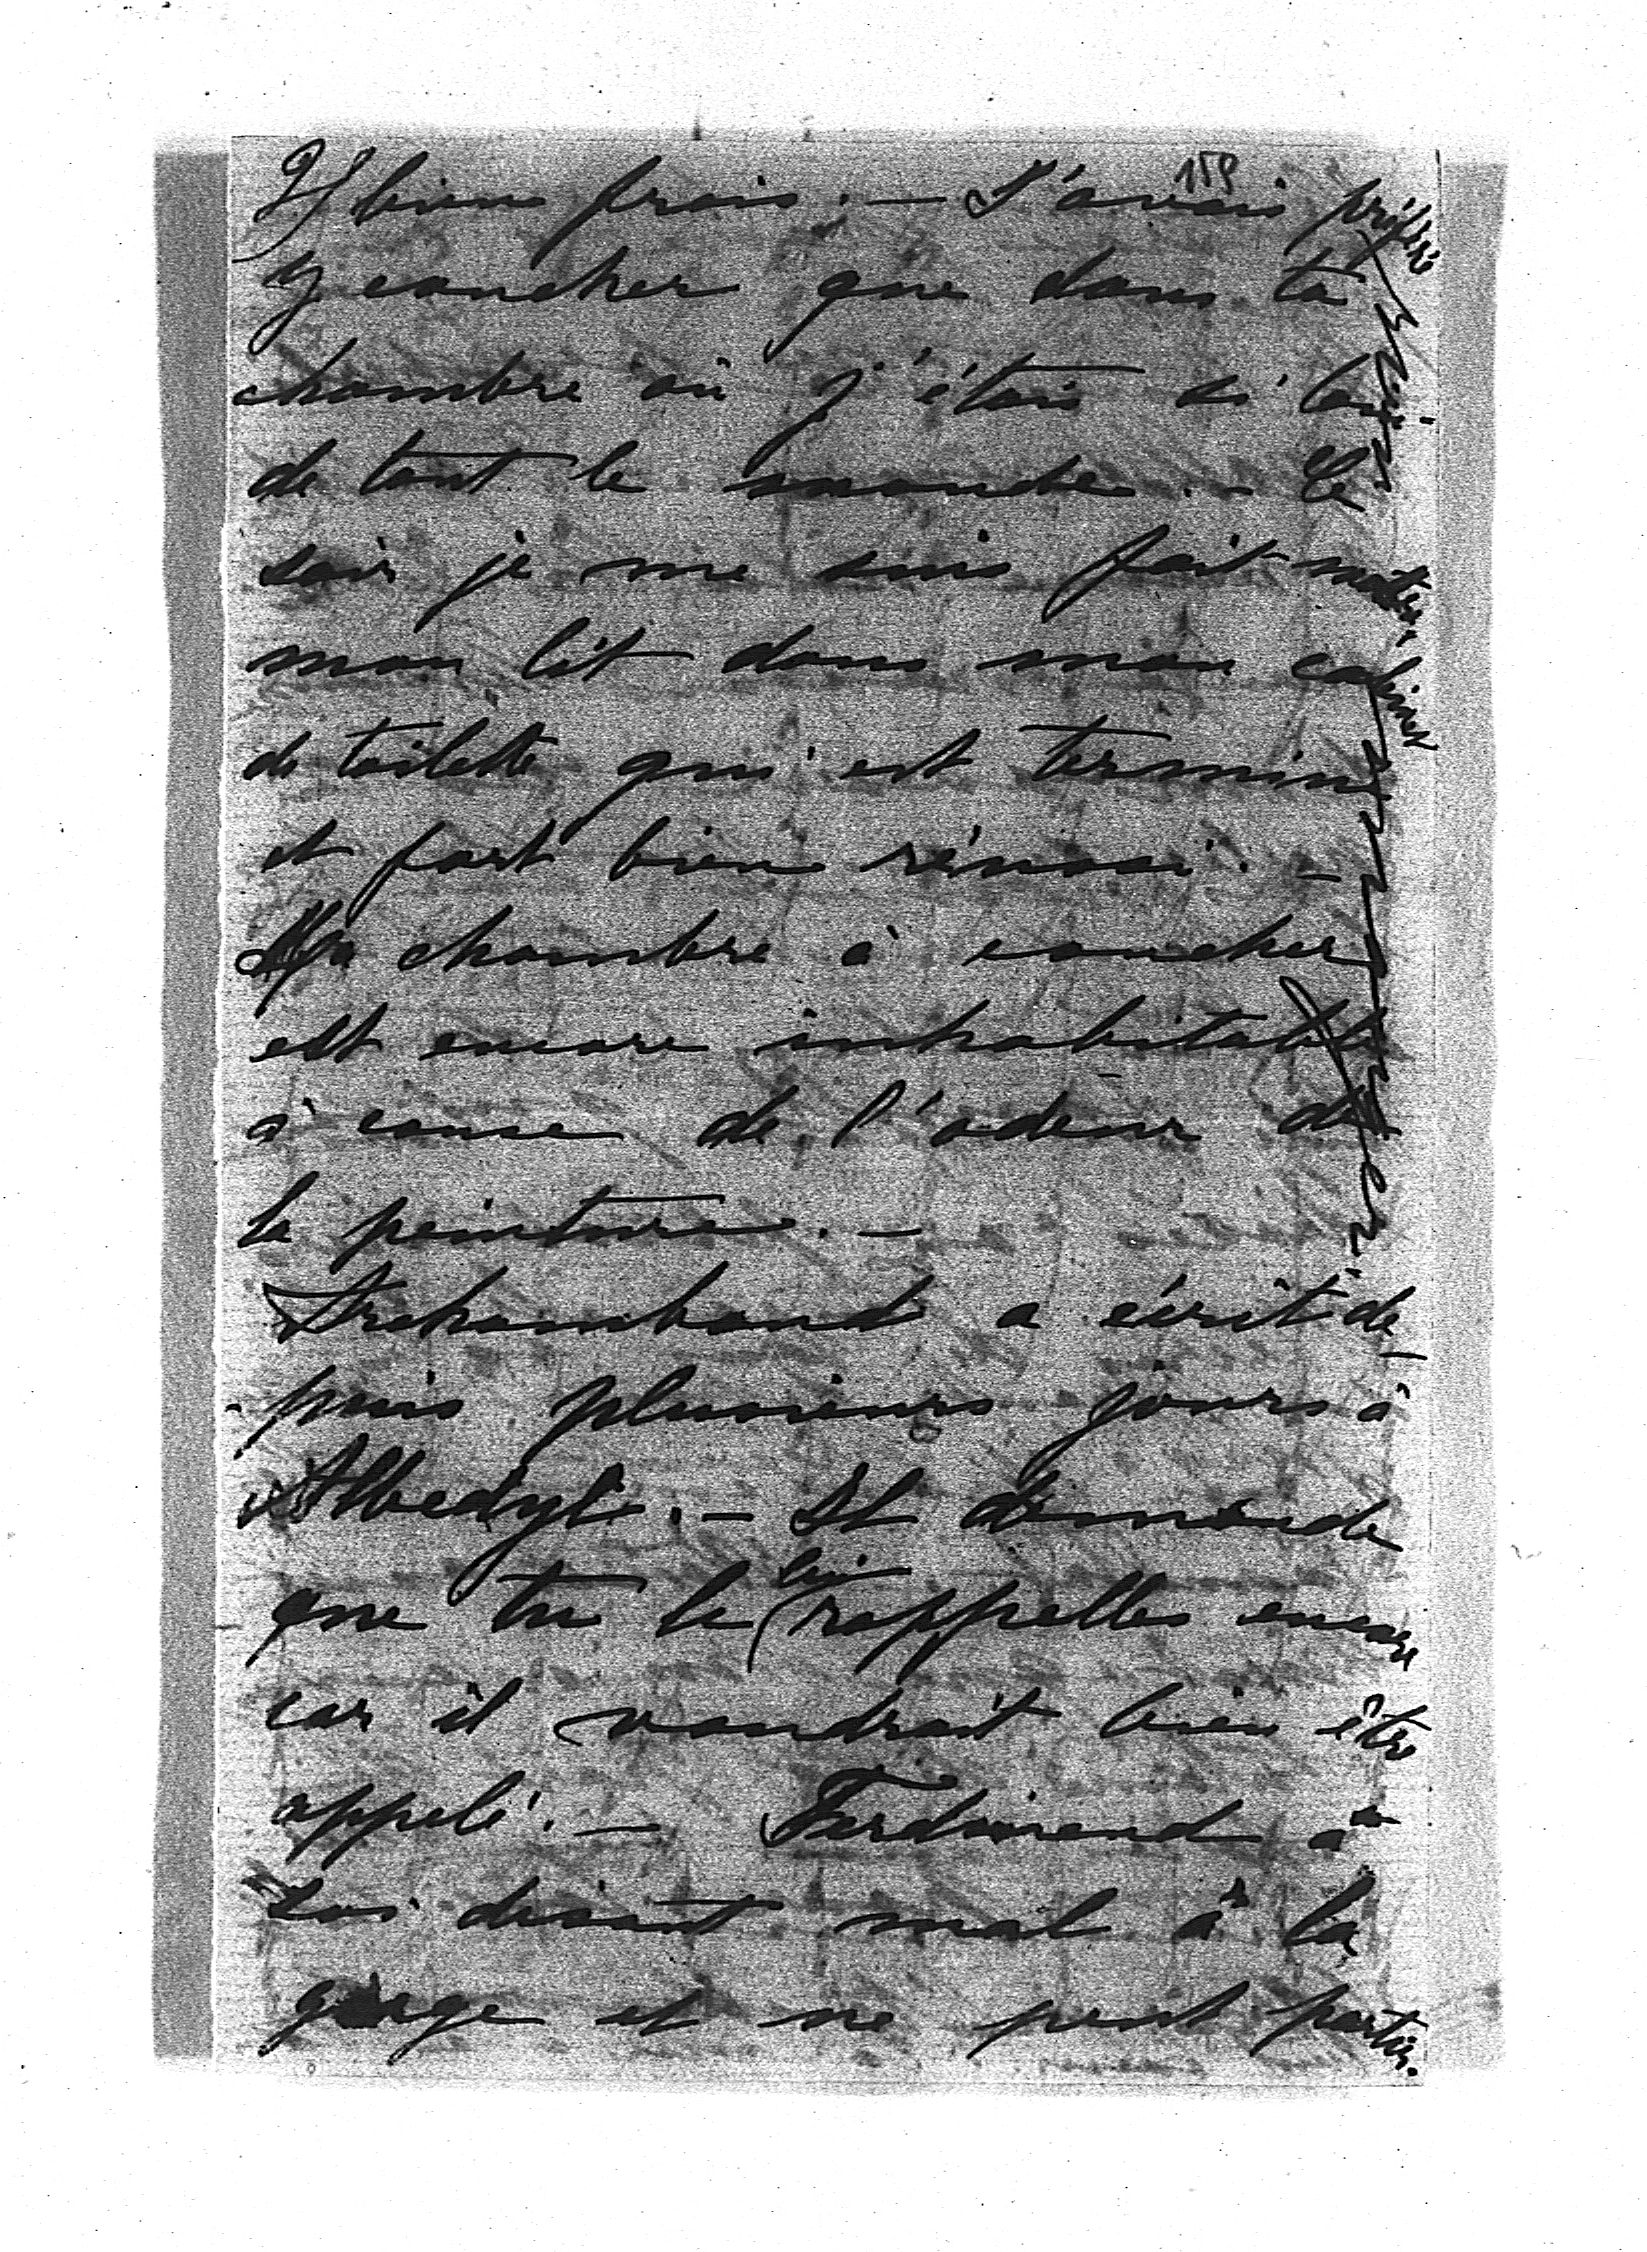 159
2/ bien frais. — J'avais préféré
y coucher que dans ta
chambre où j'étais si loin
de tout le monde. — Le
soir je me suis fait mettre
mon lit dans mon cabinet
de toilette qui est terminé
et fort bien réussi. —
Ma chambre à coucher
est encore inhabitable
à cause de l'odeur de
la peinture. —
a écrit de-
puis plusieurs jours à
Albedyl. — Il demande
que tu le lui rappelles encore
car il voudrait bien être
appelé. — Ferdinand a
soi disant mal à la
gorge et ne peut partir.